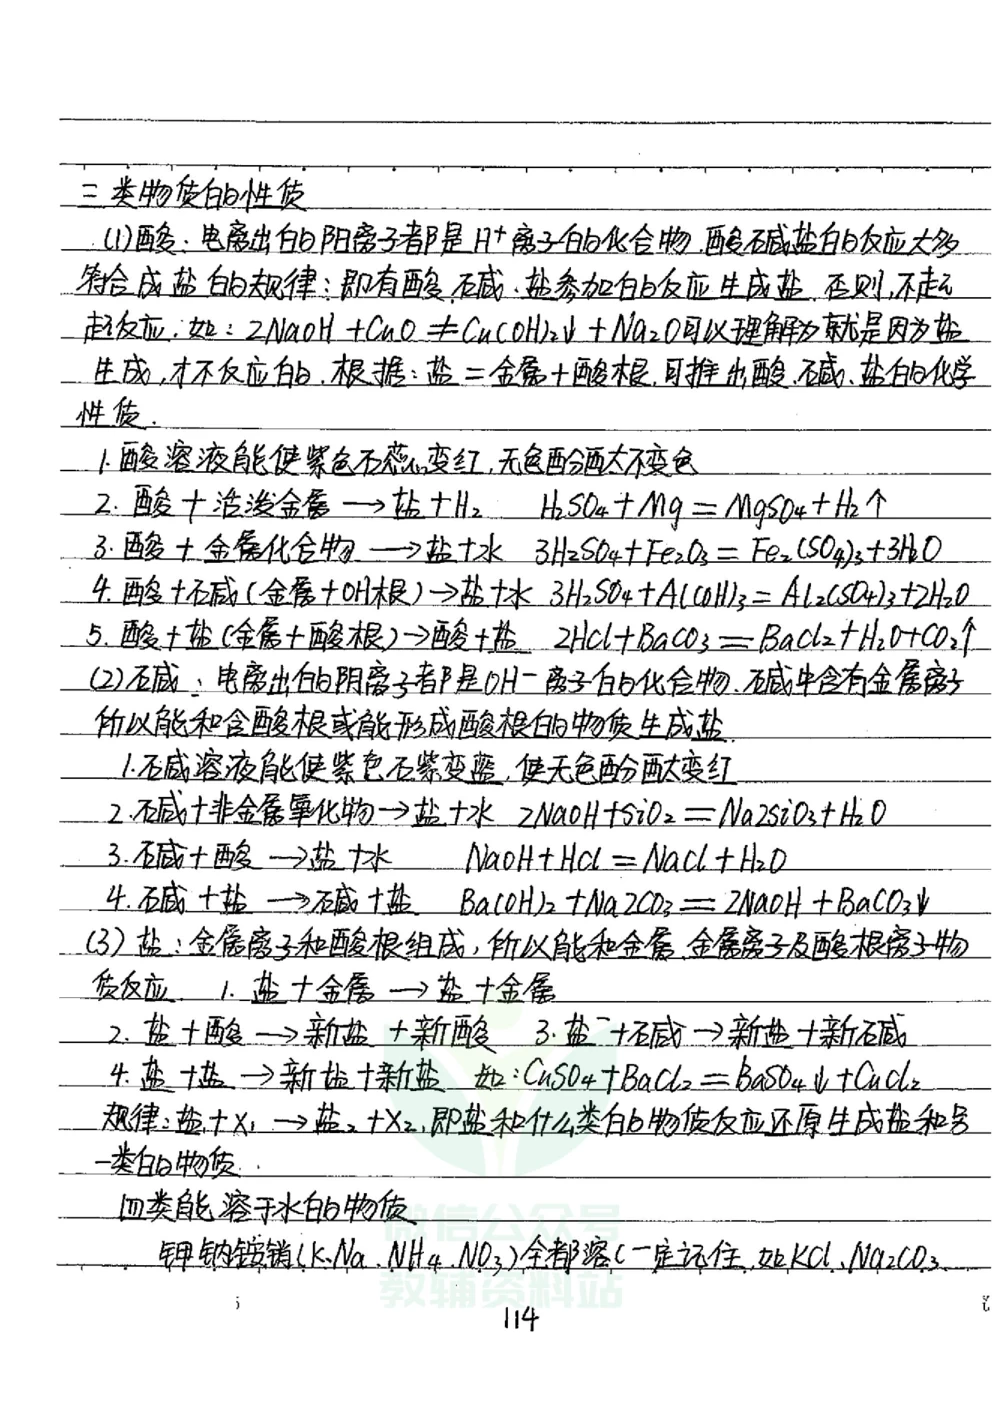 三类物质的性质
(1)酸：电离出的阳离子都是H⁺离子的化合物.酸碱盐的反应大多
符合成盐的规律：即有酸.碱.盐参加的反应生成盐.否则,不起
反应.如：2NaOH+CuO≠Cu(OH)₂↓+Na₂O可以理解为就是因为盐
生成,才不反应的.根据：盐=金属+酸根.可推出酸.碱、盐的化学
性质.
1.酸溶液能使紫色石蕊变红,无色酚酞不变色
2.酸+活泼金属→盐+H₂ H₂SO₄+Mg=MgSO₄+H₂↑
3.酸+金属化合物→盐+水 3H₂SO₄+Fe₂O₃=Fe₂(SO₄)₃+3H₂O
4.酸+碱(金属+OH根)→盐+水 3H₂SO₄+Al(OH)₃=Al₂(SO₄)₃+2H₂O
5.酸+盐(金属+酸根)→酸+盐 2HCl+BaCO₃=BaCl₂+H₂O+CO₂↑
(2)碱：电离出的阴离子都是OH⁻离子的化合物.碱中含有金属离子
所以能和含酸根或能形成酸根的物质生成盐.
1.碱溶液能使紫色石紫变蓝,使无色酚酞变红
2.碱+非金属氧化物→盐+水 2NaOH+SiO₂=Na2SiO₃+H₂O
3.碱+酸→盐+水 NaOH+HCl=NaCl+H₂O
4.碱+盐→碱+盐 Ba(OH)₂+Na2CO₃=2NaOH+BaCO₃↓
(3)盐：金属离子和酸根组成,所以能和金属.金属离子及酸根离子物
质反应. 1.盐+金属→盐+金属
2.盐+酸→新盐+新酸 3.盐+碱→新盐+新碱
4.盐+盐→新盐+新盐 如：CuSO₄+BaCl₂=BaSO₄↓+CuCl₂
规律：盐₁+X₁→盐₂+X₂,即盐和什么类的物质反应还原生成盐和另
一类的物质.
四类能溶于水的物质
钾钠铵硝(K.Na.NH₄.NO₃)全都溶(一定记住.如KCl、Na₂CO₃
微信公众号
教辅资料站
114